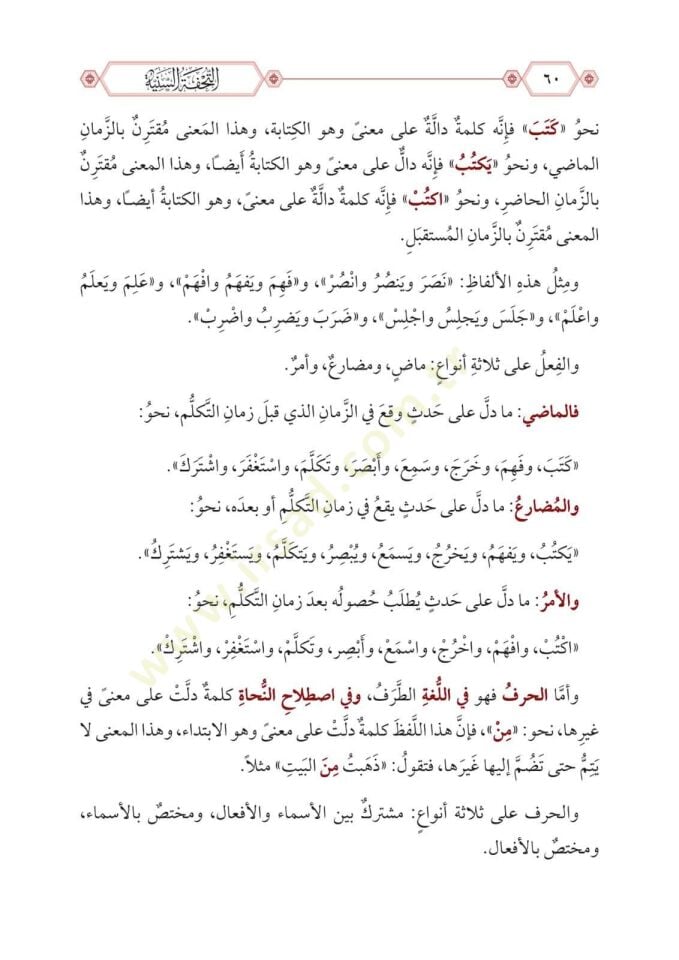 ٦٠
التحفة السنية
نحوُ «كَتَبَ» فإنَّه كلمةٌ دالَّةٌ على معنىً وهو الكِتابة، وهذا المَعنى مُقتَرِنٌ بالزَّمانِ
الماضي، ونحوُ «يَكتُبُ» فإنَّه دالٌّ على معنىً وهو الكتابةُ أيضـًا، وهذا المعنى مُقتَرِنٌ
بالزَّمانِ الحاضرِ، ونحوُ «اكتُبْ» فإنَّه كلمةٌ دالَّةٌ على معنىً، وهو الكتابةُ أيضـًا، وهذا
المعنى مُقتَرِنٌ بالزَّمانِ المُستقبَلِ.
ومِثلُ هذهِ الألفاظِ: «نَصَرَ ويَنصُرُ وانْصُرْ»، و«فَهِمَ ويَفهَمُ وافْهَمْ»، و«عَلِمَ ويَعلَمُ
واعْلَمْ»، و«جَلَسَ ويَجلِسُ واجْلِسْ»، و«ضَرَبَ ويَضرِبُ واضْرِبْ».
والفِعلُ على ثلاثةِ أنواعٍ: ماضٍ، ومضارعٌ، وأمرٌ.
فالماضي: ما دلَّ على حَدثٍ وقعَ في الزَّمانِ الذي قبلَ زمانِ التَّكلُّم، نحوُ:
«كَتَبَ، وفَهِمَ، وخَرَجَ، وسَمِعَ، وأَبْصَرَ، وتَكَلَّمَ، واسْتَغْفَرَ، واشْتَرَكَ».
والمُضارعُ: ما دلَّ على حَدثٍ يقعُ في زمانِ التَّكلُّمِ أو بعدَه، نحوُ:
«يَكتُبُ، ويَفهَمُ، ويَخرُجُ، ويَسمَعُ، ويُبْصِرُ، ويَتكَلَّمُ، ويَستَغْفِرُ، ويَشتَرِكُ».
والأمرُ: ما دلَّ على حَدثٍ يُطلَبُ حُصولُه بعدَ زمانِ التَّكلُّمِ، نحوُ:
«اكْتُبْ، وافْهَمْ، واخْرُجْ، واسْمَعْ، وأَبْصِر، وتَكلَّمْ، واسْتَغْفِرْ، واشْتَرِكْ».
وأمَّا الحرفُ فهو في اللُّغةِ الطَّرَفُ، وفي اصطِلاحِ النُّحاةِ كلمةٌ دلَّتْ على معنىً في
غيرِها، نحو: «مِنْ»، فإنَّ هذا اللَّفظَ كلمةٌ دلَّتْ على معنىً وهو الابتداء، وهذا المعنى لا
يَتِمُّ حتى تَضُمَّ إليها غَيرَها، فتقولُ: «ذَهَبتُ مِنَ البَيتِ» مثلاً.
والحرف على ثلاثة أنواعٍ: مشتركٌ بين الأسماء والأفعال، ومختصٌ بالأسماء،
ومختصٌ بالأفعال.
www.irsad.com.tr